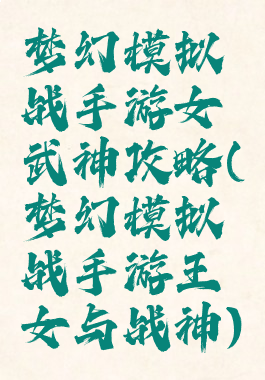 梦幻模拟
战手游女
武神攻略(
梦幻模拟
战手游王
女与战神)